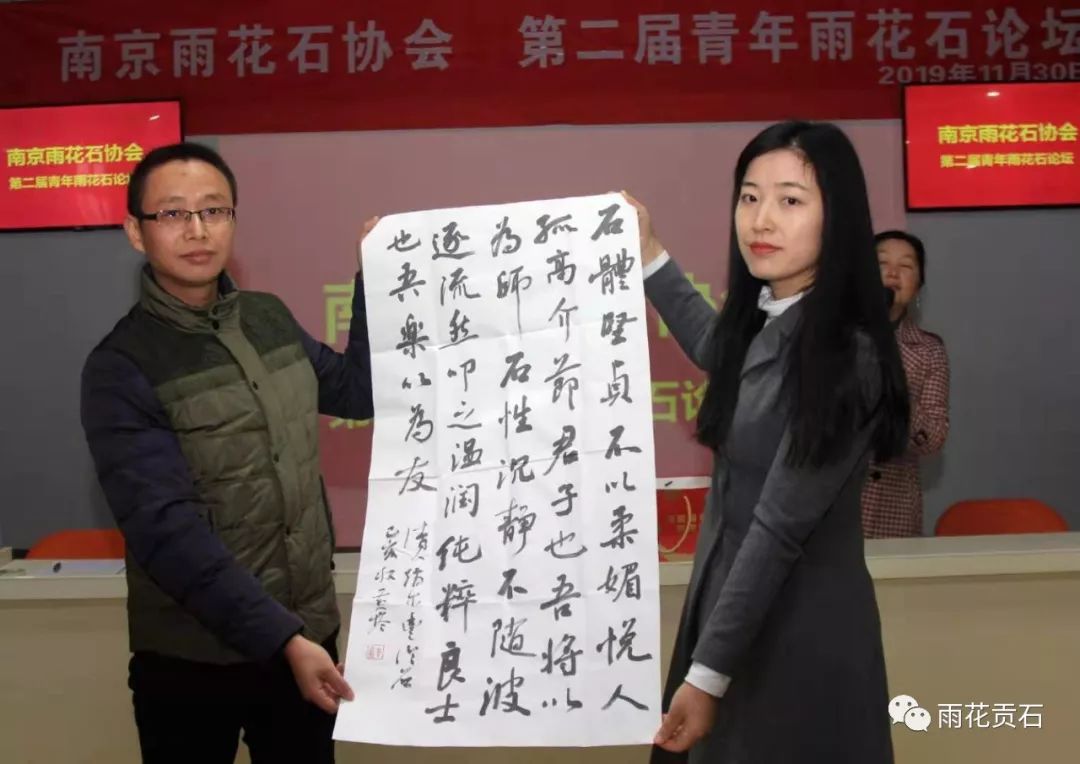 南京雨花石协会 第二届青年雨花石论坛
2019年11月30日
南京雨花石协会
第二届青年雨花石论坛
南京雨花石协会
第二届青年雨花石论坛
石體堅貞不以柔媚悦人
孤高介節君子也吾将以
為師 石性沉静不随波
逐流然叩之温润纯粹良士
也吾樂以為友
雨花贡石